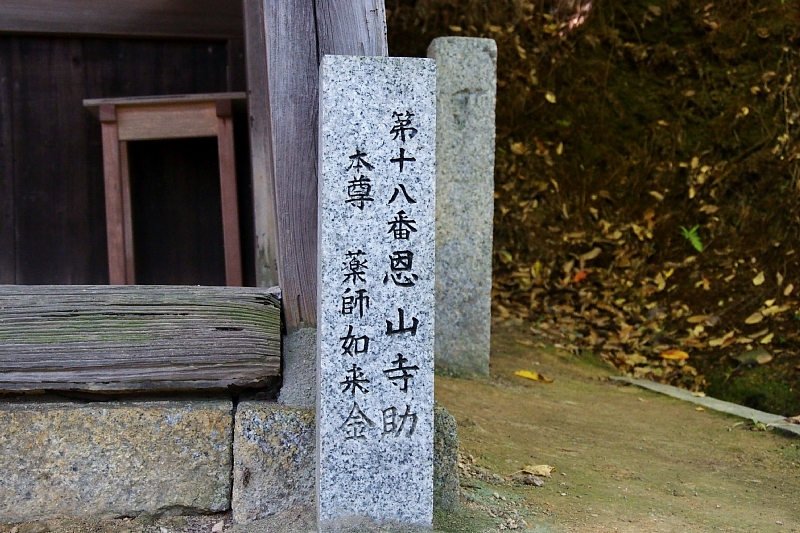 第十八番恩山寺助
本尊 薬師如来金